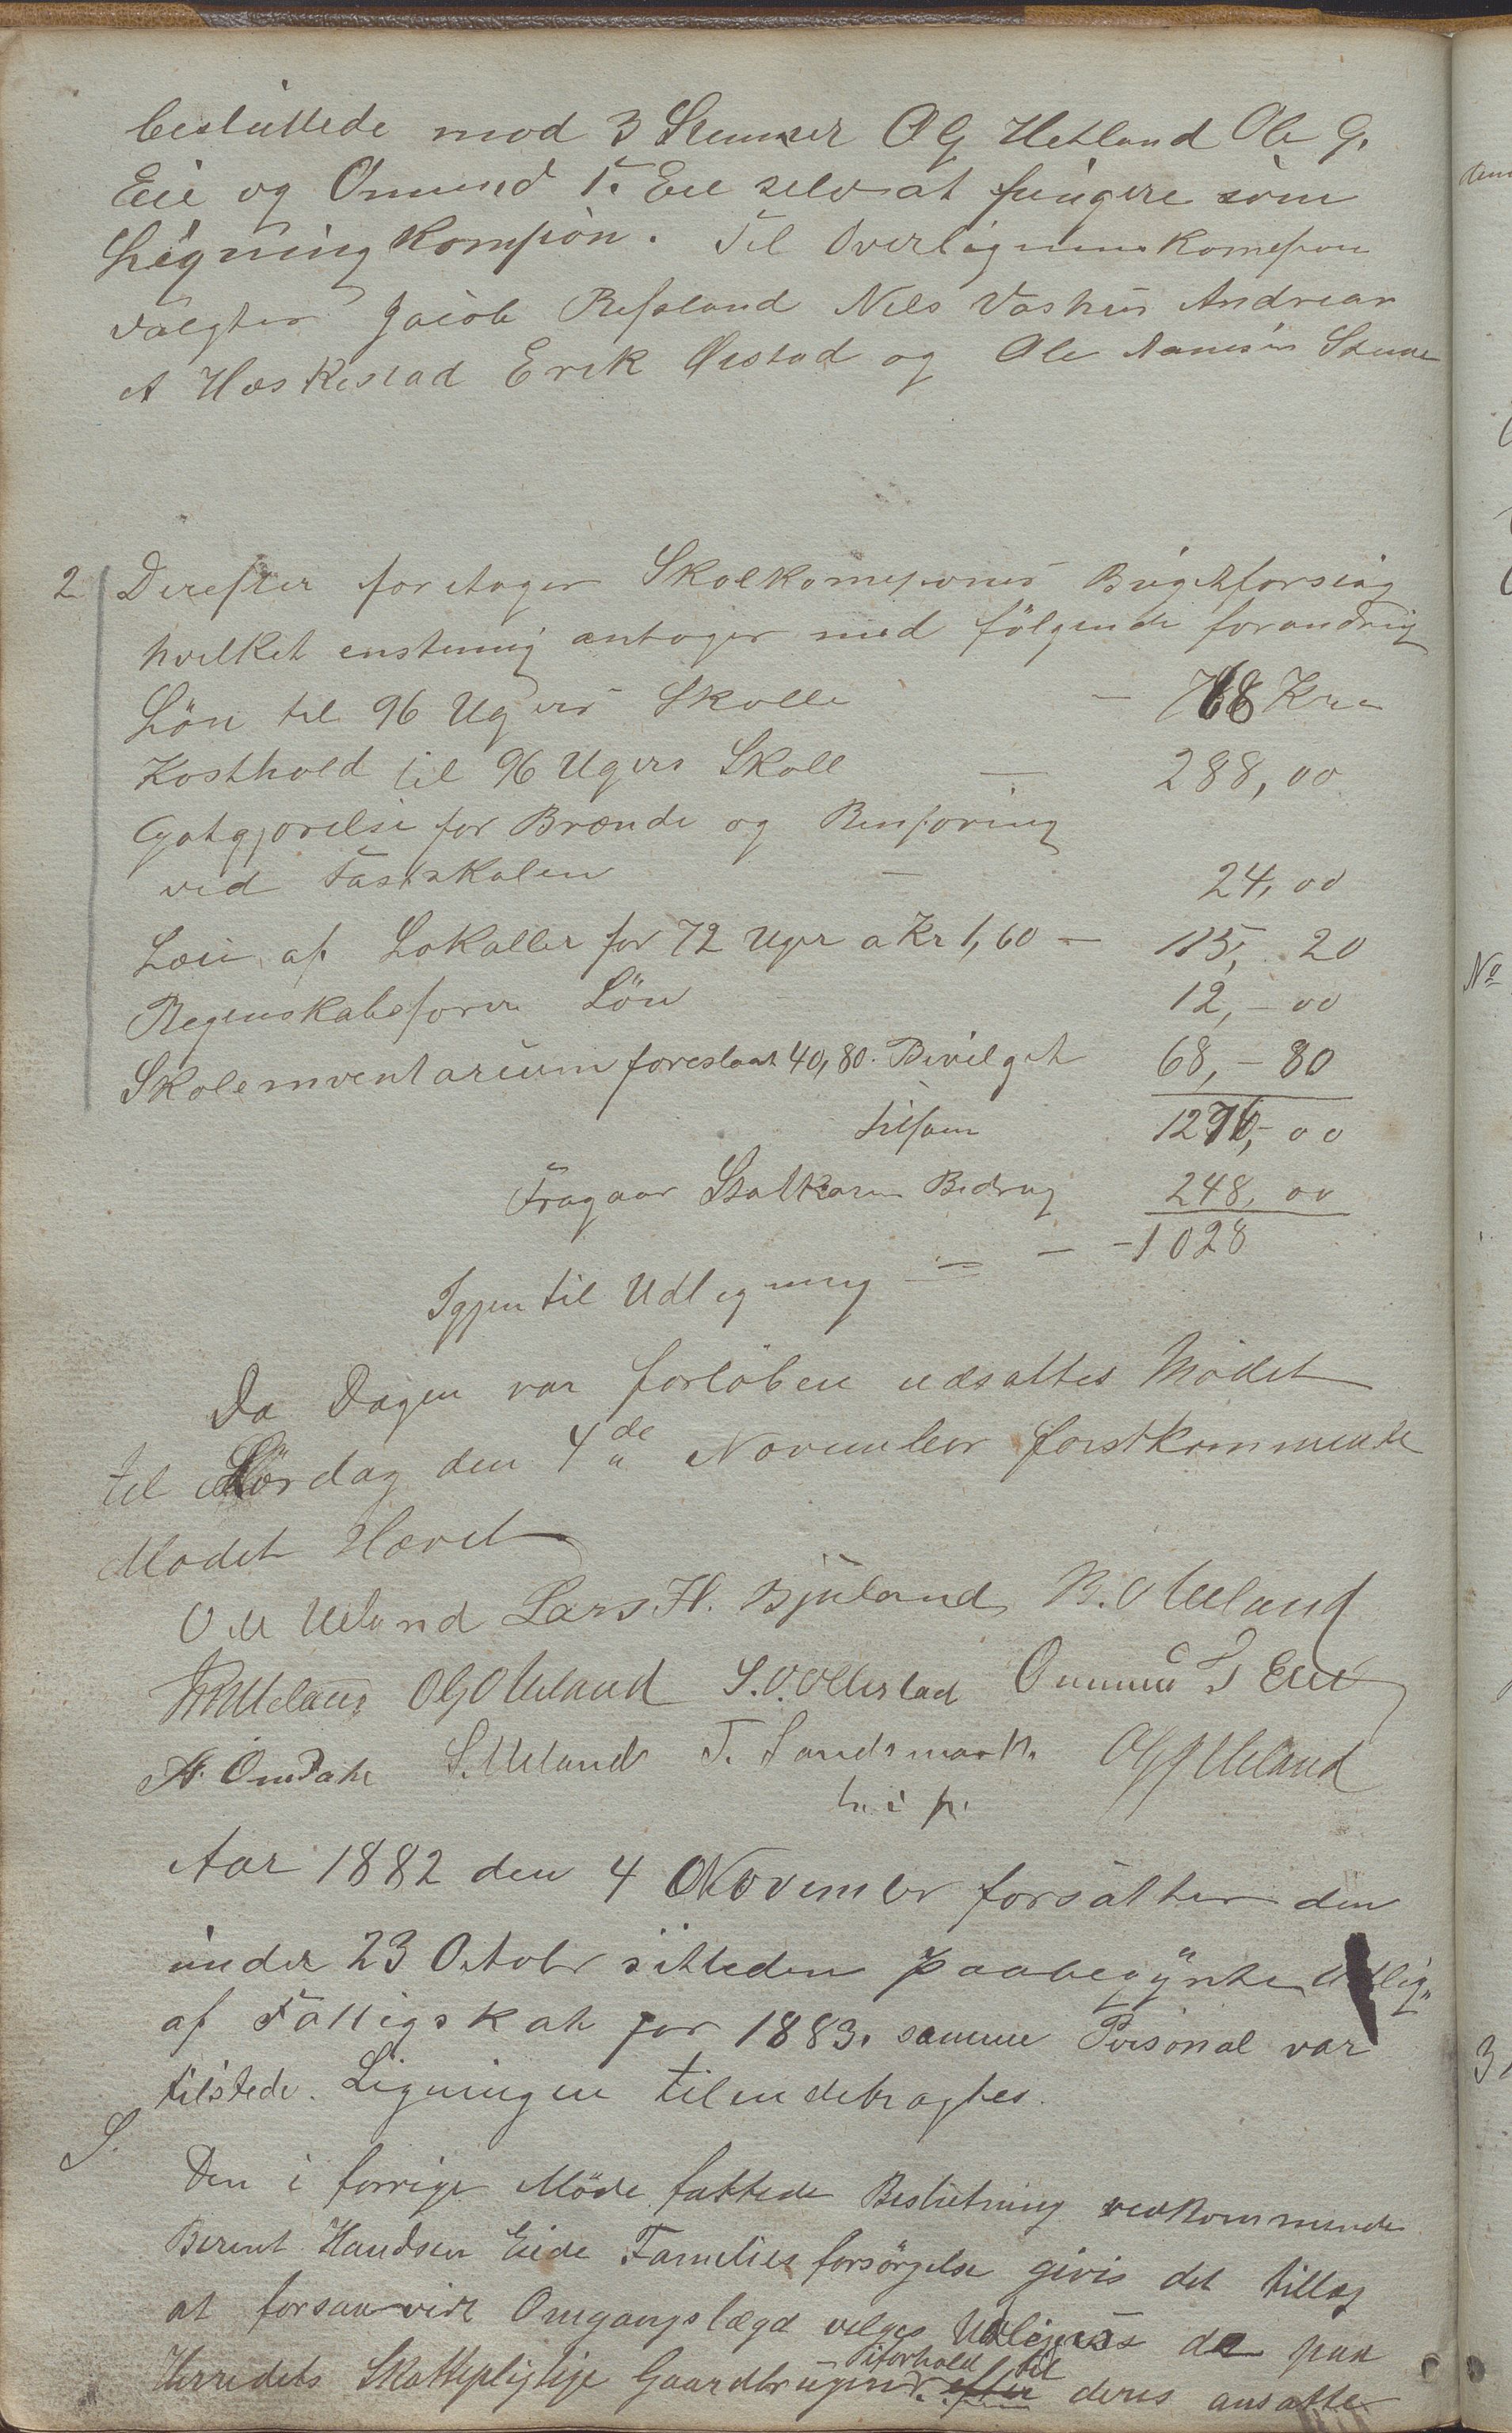 besluttede mod 3 Stemmer O G Hetland Ole G.
Eie og Omund T. Eie selv at fungere som
Ligningkomission. Til Overligningskomission
valgtes Jacob Refsland Nils Vashus Andreas
A Hæskestad Erik Ørstad og Ole Aanesen
2 Derefter foretoges Skolekomisionens Bugetforslag
hvilket enstemig antoges med følgende forandrig
Løn til 96 Ugers Skolle — 768 Kr
Kosthold til 96 Ugers Skoll — 288,00
Gotgjørelse for Brænde og Renforing
ved Fastskolen — 24,00
Leie af Lokaller for 72 Uger a Kr 1,60 — 115, 20
Regenskabsforer Løn 12,- 00
Skoleinventarium foreslaat 40,80. Bevilget 68,- 80
tilsam 1276,- 00
Fragaar Statkasen Bedrag 248,00
Igjen til Udligning — — -1028
Da Dagen var forløben udsattes Mødet
til Lørdag den 4de November førstkommende
Mødet Hævet
O M Ueland Lars. H. Bjuland B. O Ueland
Ueland O G O Ueland S. O. Ollestad Omund T Eie
A. Omdahl S. Ueland T. Sandsmark. O G Ueland
m. i p.
Aar 1882 den 4 November forsatter den
under 23 Octobr sitleden paabegynte Udlig„
af Fattigskat for 1883. samme Personal var
tilstede. Ligningen tilendebragtes.
Den i forrige Møde fattede Beslutning vedkommende
Berent Handsen Eiede Families forsørgelse gives det tillæg
at forsaavidt Omgangslægd velges Udlignes de paa
iforhold til
Herredets Skattepligtige Gaardbrugere. efter deres ansatte